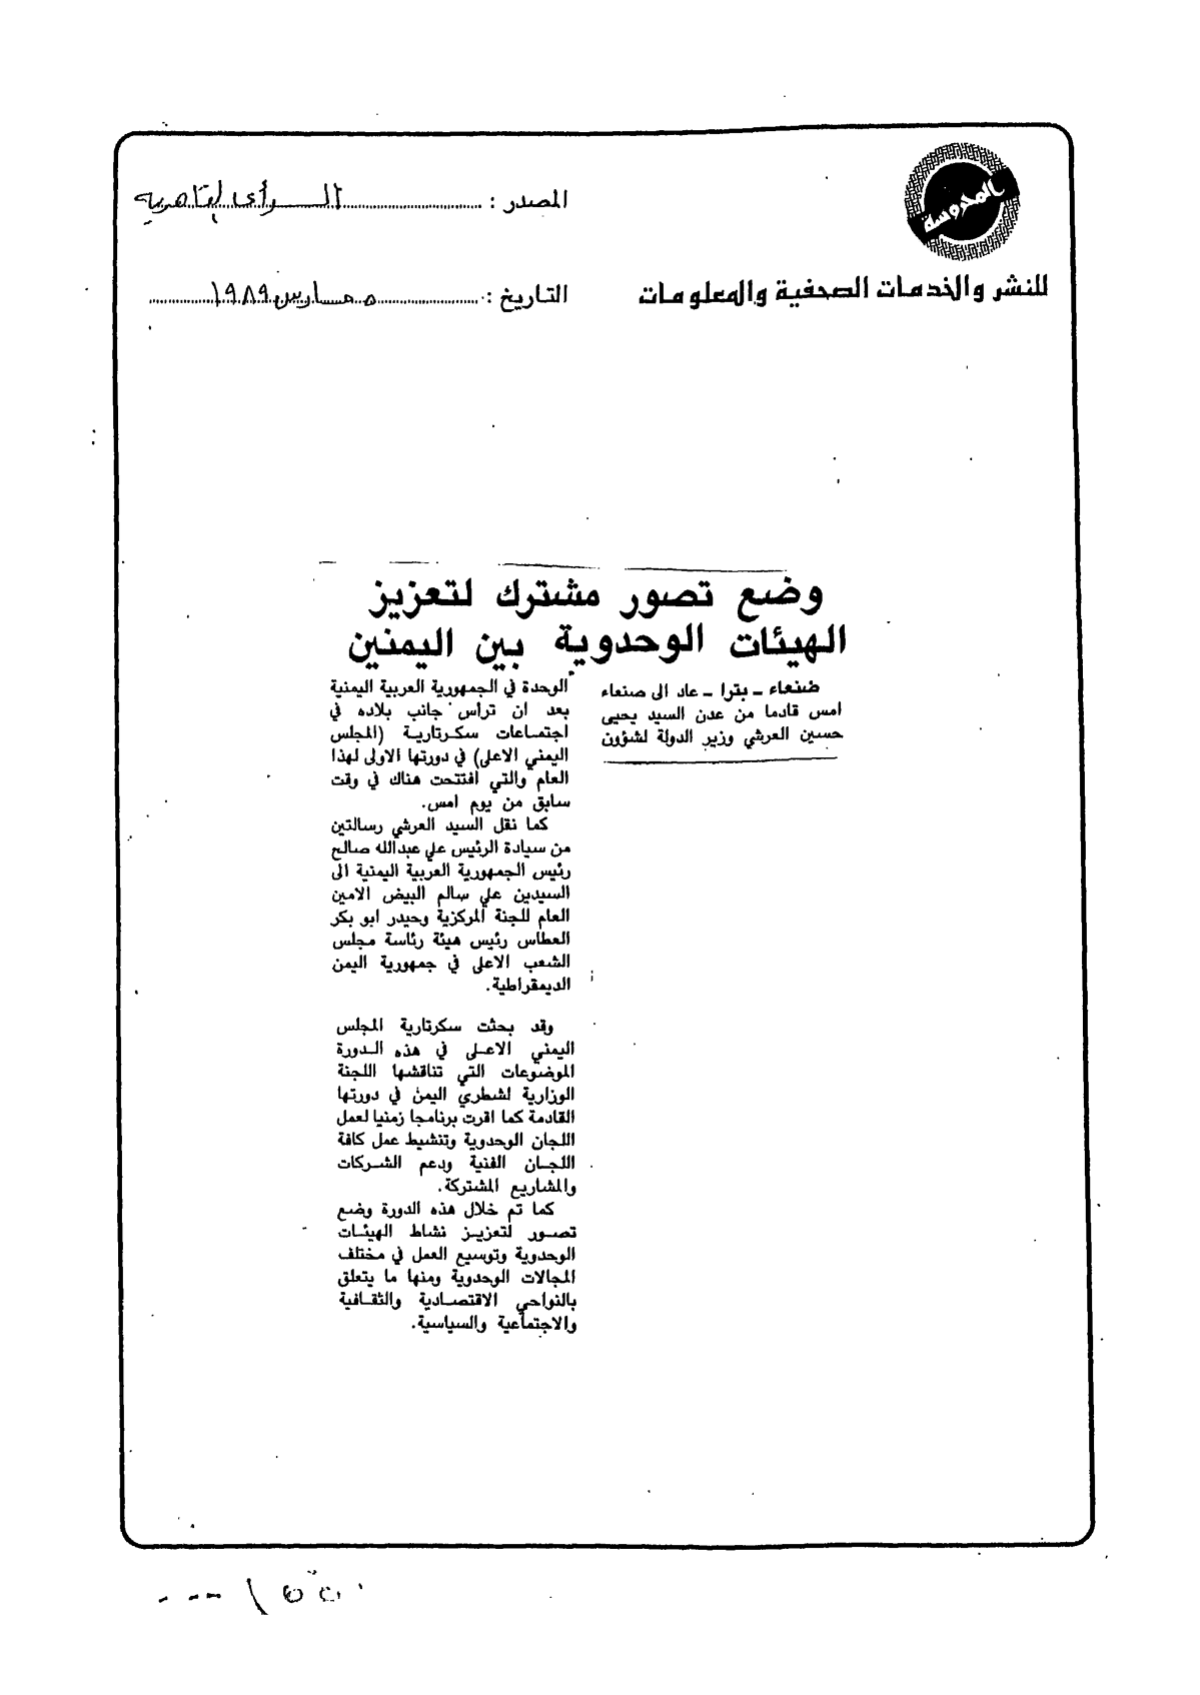 المحروسة
للنشر والخدمات الصحفية والمعلومات
المصدر : الرأى
التاريخ : مارس ١٩٨٩
وضع تصور مشترك لتعزيز
الهيئات الوحدوية بين اليمنين
صنعاء ـ بترا ـ عاد الى صنعاء
امس قادما من عدن السيد يحيى
حسين العرشي وزير الدولة لشؤون
الوحدة في الجمهورية العربية اليمنية
بعد ان ترأس جانب بلاده في
اجتماعات سكرتارية (المجلس
اليمني الاعلى) في دورتها الاولى لهذا
العام والتي افتتحت هناك في وقت
سابق من يوم امس.
كما نقل السيد العرشي رسالتين
من سيادة الرئيس علي عبدالله صالح
رئيس الجمهورية العربية اليمنية الى
السيدين علي سالم البيض الامين
العام للجنة المركزية وحيدر ابو بكر
العطاس رئيس هيئة رئاسة مجلس
الشعب الاعلى في جمهورية اليمن
الديمقراطية.
وقد بحثت سكرتارية المجلس
اليمني الاعلى في هذه الدورة
الموضوعات التي تناقشها اللجنة
الوزارية لشطري اليمن في دورتها
القادمة كما اقرت برنامجا زمنيا لعمل
اللجان الوحدوية وتنشيط عمل كافة
اللجان الفنية ودعم الشركات
والمشاريع المشتركة.
كما تم خلال هذه الدورة وضع
تصور لتعزيز نشاط الهيئات
الوحدوية وتوسيع العمل في مختلف
المجالات الوحدوية ومنها ما يتعلق
بالنواحي الاقتصادية والثقافية
والاجتماعية والسياسية.